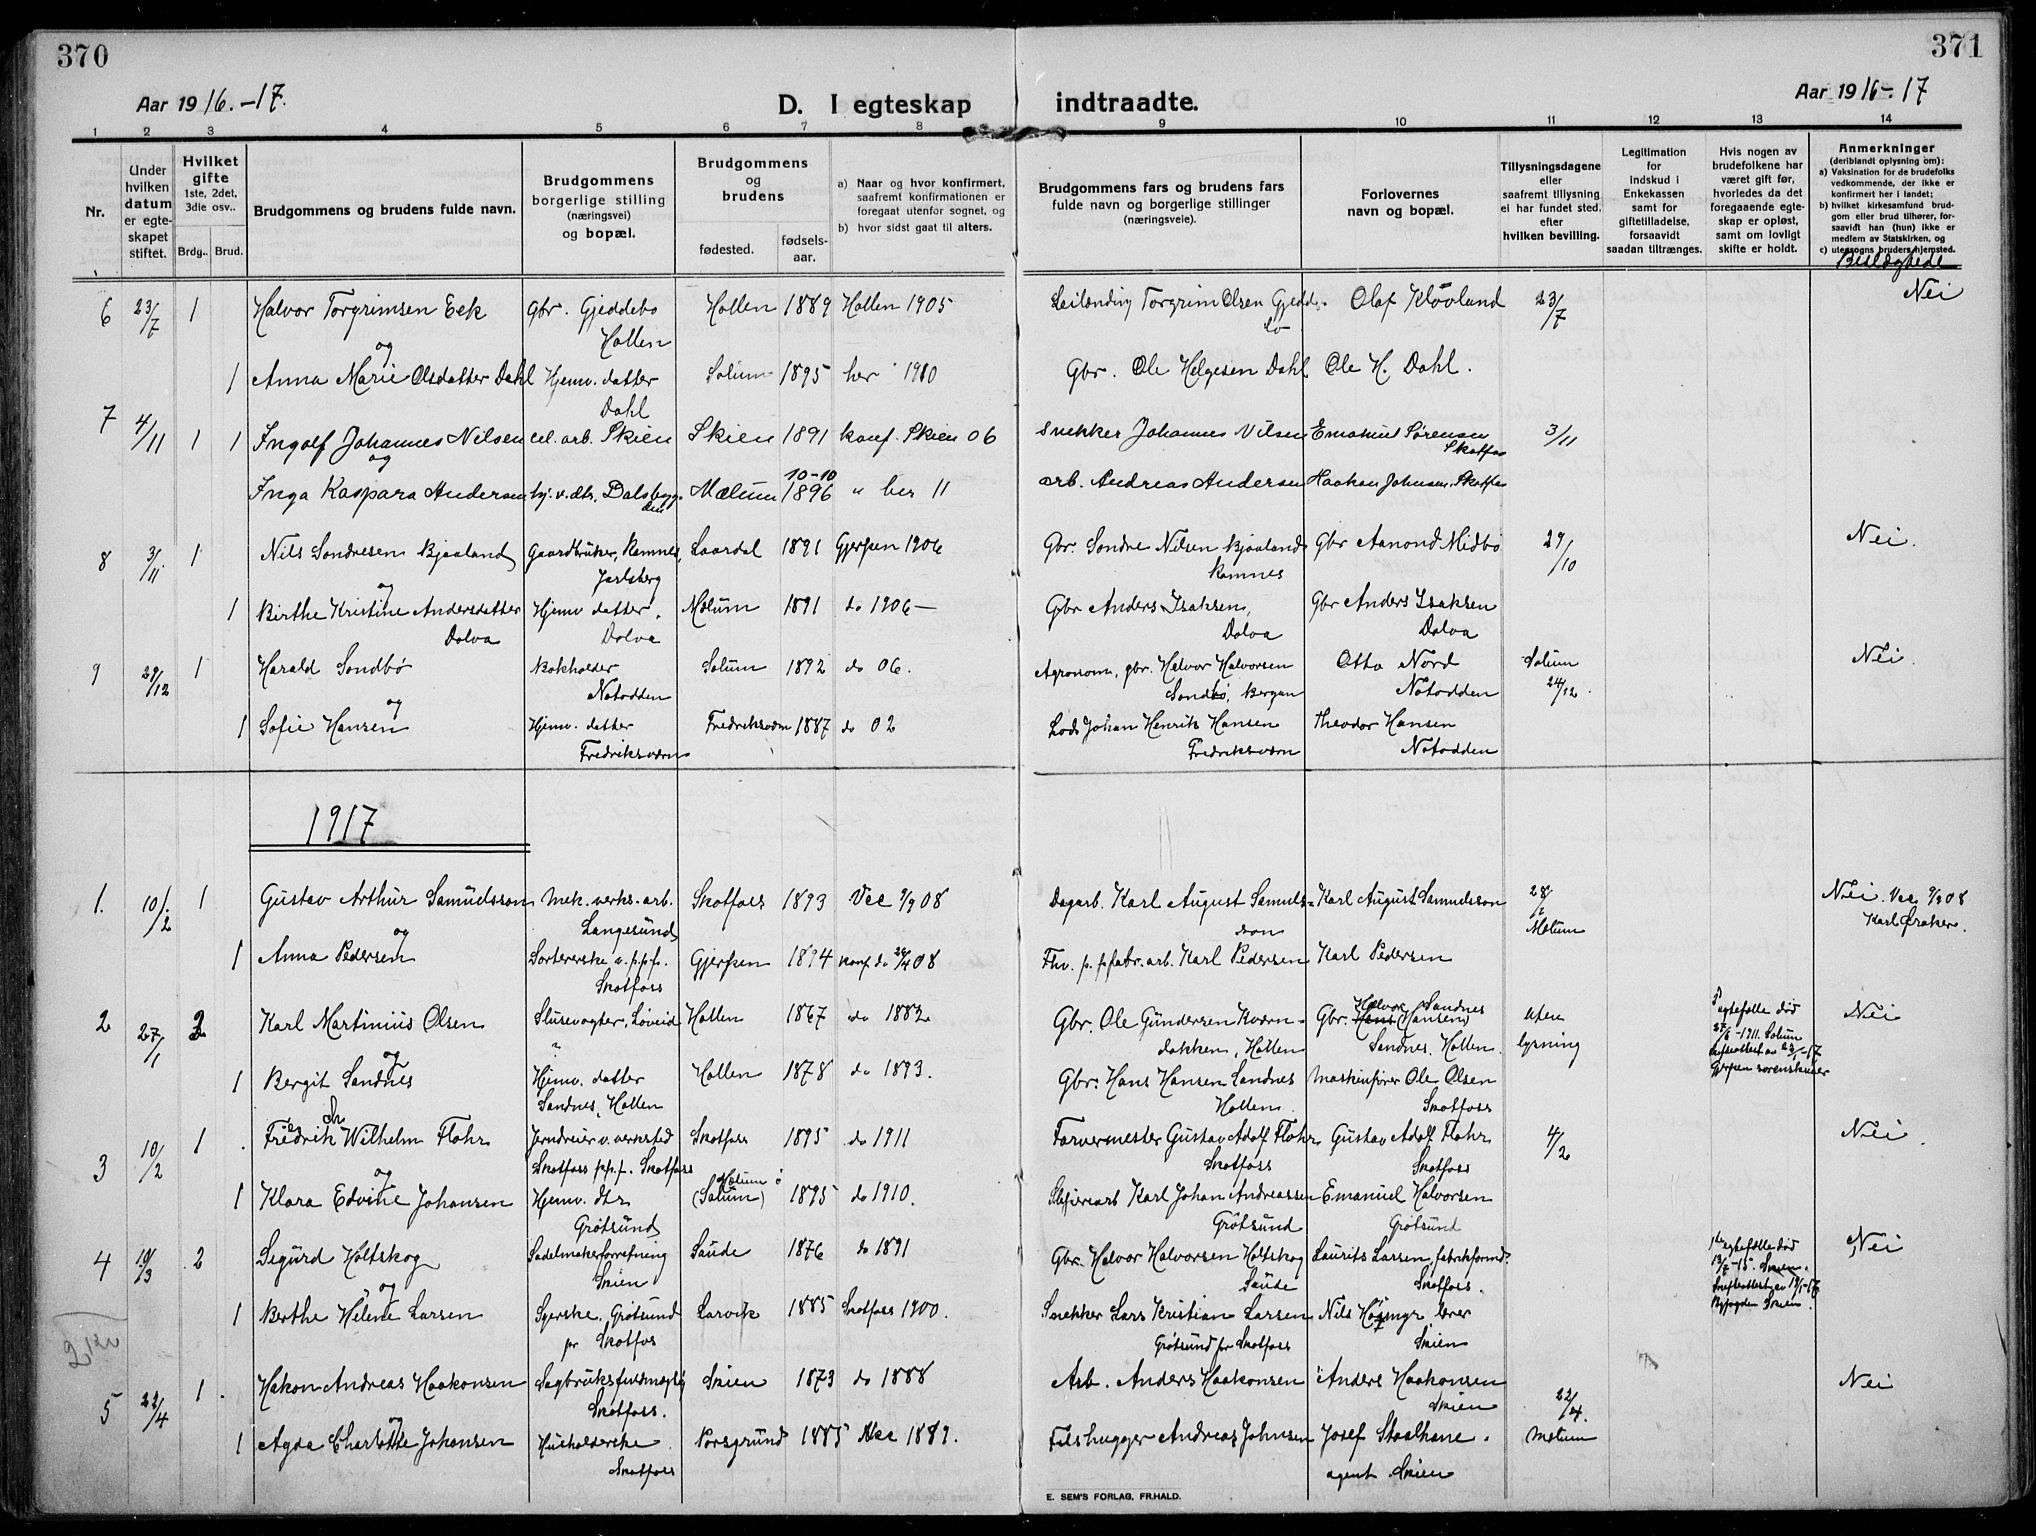 370
371
Aar 1916.-17.
D. I egteskap indtraadte.
Aar 1916-17
1 2 3 4 5 6 7 8 9 10 11 12 13 14
Nr.
Under hvilken datum er egteskapet stiftet.
Hvilket gifte 1ste, 2det, 3die osv..
Brdg.. Brud.
Brudgommens og brudens fulde navn.
Brudgommens borgerlige stilling (næringsvei) og bopæl.
Brudgommens og brudens
fødested.
fødselsaar.
a) Naar og hvor konfirmert, saafremt konfirmationen er foregaat utenfor sognet, og
b) hvor sidst gaat til alters.
Brudgommens fars og brudens fars fulde navn og borgerlige stillinger (næringsveie).
Forlovernes navn og bopæl.
Tillysningsdagene eller saafremt tillysning ei har fundet sted, efter hvilken bevilling.
Legitimation for indskud i Enkekassen samt for giftetilladelse, forsaavidt saadan tiltrænges.
Hvis nogen av brudefolkene har været gift før, hvorledes da det foregaaende egteskap er opløst, samt om lovligt skifte er holdt.
Anmerkninger (deriblandt oplysning om):
a) Vaksination for de brudefolks vedkommende, der ikke er konfirmert her i landet;
b) hvilket kirkesamfund brudgom eller brud tilhører, forsaavidt han (hun) ikke er medlem av Statskirken, og
c) utensogns bruders hjemsted.
Beslægtede
6 23/7 1 Halvor Torgrimsen Eek Gbr. Gjeddebo Hollen 1889 Hollen 1905 Leilænding Torgrim Olsen Gjedde- Olaf Klövland 23/7 Nei
Hollen bö
og
1 Anna Marie Olsdatter Dahl Hjemv. datter Solum 1895 her 1910 Gbr. Ole Helgesen Dahl Ole H. Dahl.
Dahl
7 4/11 1 1 Ingolf Johannes Nilsen cel. arb. Skien Skien 1891 konf. Skien 06 Snekker Johannes Nilsen Emanuel Sørensen 3/11
Skotfos
og
10-10
Inga Kaspara Andersen hj. v. dtr. Dalsbygden Mælum 1896 " her 11 arb. Andreas Andersen Haakon Johnsen, Skotfos
8 3/11. 1 Nils Sondresen Bjaaland Gaardbruker, Ramnes, Laardal 1891 Gjerpen 1906 Gbr. Sondre Nilsen Bjaaland Gbr Aanond Midbö 29/10 Nei.
Jarlsberg Ramnes
og
1 Birthe Kristine Andersdatter Hjemv. datter. Mælum 1891 do 1906 — Gbr Anders Isaksen, Gbr Anders Isaksen
Dolva Dolva Dolva Dolva
9 29/12 1 Harald Sondbö Bokholder Solum 1892 do 06. Agronom, gbr. Halvor Halvorsen Otto Nord Solum Nei.
Notodden Sondbö, Bergan Notodden 24/12.
og
1 Sofie Hansen Hjemv. datter Fredriksværn 1887 do 02 Lods Johan Henrik Hansen Theodor Hansen
Fredriksværn Fredriksværn Notodden
1917
1. 10/2 1 Gustav Arthur Samuelsson Mek. verks. arb. Skotfoss 1893 Vee 08 Dagarb. Karl August Samuels- Karl August Samuelsson 28/ Nei. Vac. 08
Langesund son Mælum Karl
og
1 Anna Pedersen Sortererske v. p.p.f. Gjerpen 1894 konf. do 08 Fhv. p. pfabr. arb. Karl Pedersen Karl Pedersen
Skotfoss
2 27/1 2 Karl Martinius Olsen Slusevogter, Löveid Hollen 1867 do 1882 Gbr. Ole Gundersen Kværn- Gbr. Halvor Sandnes (Hansen) uten egtefælle död Nei
bakken, Hollen Sandnes, Hollen. lysning -1911. Solum
og
1 Bergit Sandnes Hjemv. datter Hollen 1878 do 1893. Gbr. Hans Hansen Sandnes Maskinfører Ole Olsen Gjerpen sorenskriver
Sandnes, Hollen Hollen. Skotfoss
3 10/2 1 Fredrik Wilhelm Flohr Jerndreier v. verksted Skotfoss 1895 do 1911 Farvermester Gustav Adolf Flohr Gustav Adolf Flohr 4/2 Nei.
Skotfoss p.p.f. Skotfoss Skotfoss Skotfoss
og
1 Klara Edvine Johansen Hjemv. dtr Mælum (Solum) 1895 do 1910. Sliperearb Karl Johan Andreassen Emanuel Halvorsen
Grötsund Grötsund Grötsund
4 10/3 2 Sigurd Holtskog Sadelmakerforretning Saude 1876 do 1891 Gbr. Halvor Halvorsen Holtskog Laurits Larsen, fabrikformd. egtefælle död Nei
Skien Saude Skotfoss. -15. Skien.
og
1 Berthe Helene Larsen Syerske. Grötsund Larvik 1885 Skotfoss 1900. Snekker Lars Kristian Larsen Nils Högmyr Lærer Byfogden Skien.
pr Skotfos Grötsund pr Skotfoss Skien
5 22/4 1 Hakon Andreas Haakonsen Sagbruksfuldmægtig Skien 1873 do 1888 Arb. Anders Haakonsen Anders Haakonsen 22/4. Nei
Skotfoss. Skien Mælum
og
1 Agda Charlotte Johansen Husholderske Porsgrund 1885 1889. Andreas Johnsen Josef Staalhane.
Skotfoss agent. Skien
E. SEM'S FORLAG, FR.HALD.